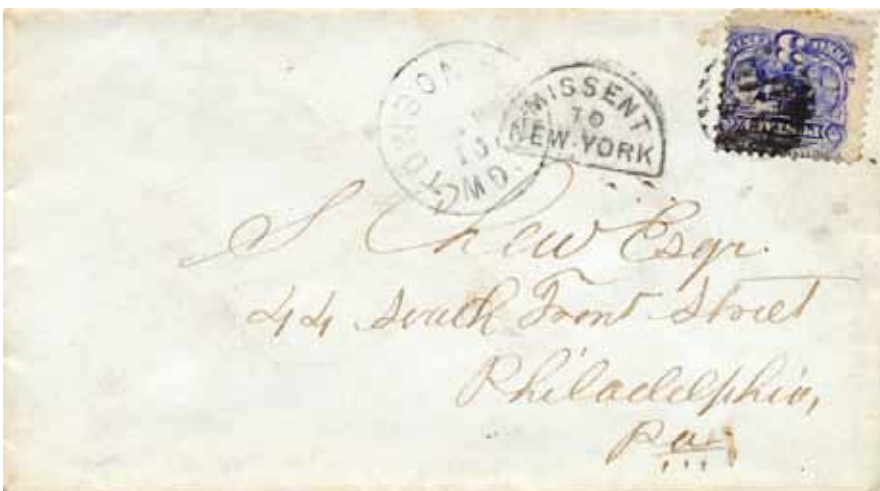 TOWSONTOWN
MD.
MISSENT
TO
NEW-YORK
S Chew Esqr.
44 South Front Street
Philadelphia,
Pa